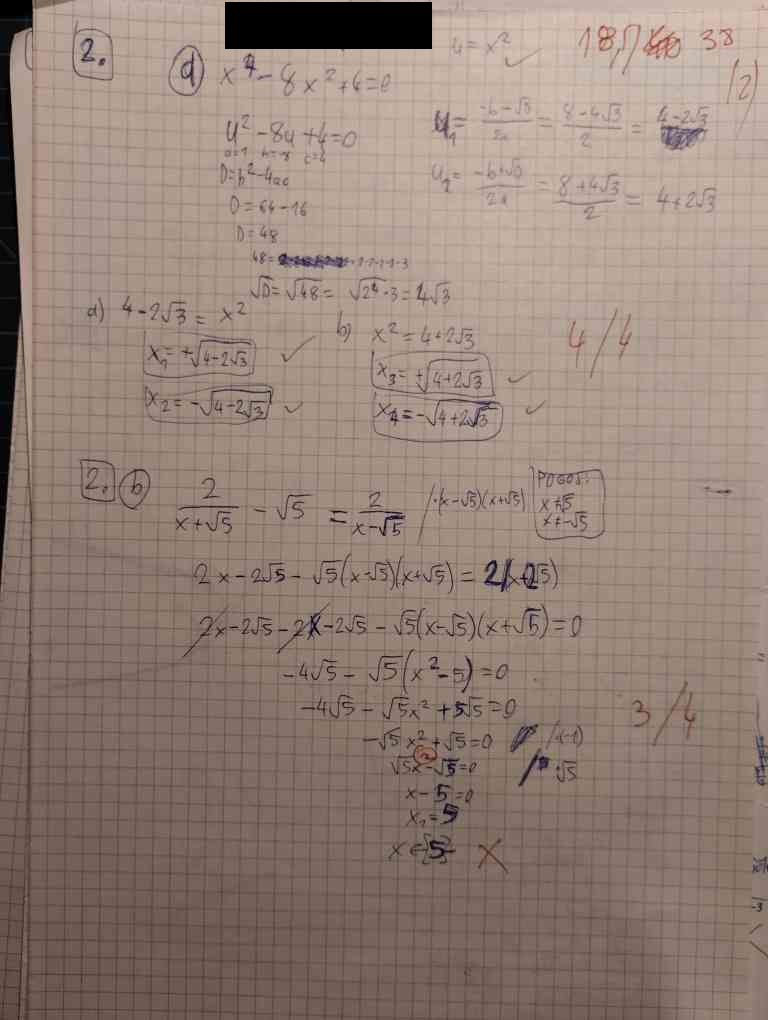 2.
d) x⁴ - 8x² + 4 = 0
u = x² ✓
18,5/38
(2)
u² - 8u + 4 = 0
a=1 b=-8 c=4
D = b² - 4ac
D = 64 - 16
D = 48
48 = 2·2·2·2·3
√D = √48 = √2⁴·3 = 4√3
u₁ = (-b-√D)/2a = (8-4√3)/2 = 4-2√3
u₂ = (-b+√D)/2a = (8+4√3)/2 = 4+2√3
a) 4-2√3 = x²
x₁ = +√4-2√3 ✓
x₂ = -√4-2√3 ✓
b) x² = 4+2√3
x₃ = +√4+2√3 ✓
x₄ = -√4+2√3 ✓
4/4
2. b) 2/(x+√5) - √5 = 2/(x-√5) /·(x-√5)(x+√5)
POGOJ:
x≠√5
x≠-√5
2x-2√5 - √5(x-√5)(x+√5) = 2(x+√5)
2x-2√5-2x-2√5-√5(x-√5)(x+√5)=0
-4√5 - √5(x²-5)=0
-4√5 - √5x² + 5√5=0
-√5x²+√5=0 /·(-1)
√5x-√5=0 /:√5
x-5=0
x₁=5
x∈{5} X
3/4